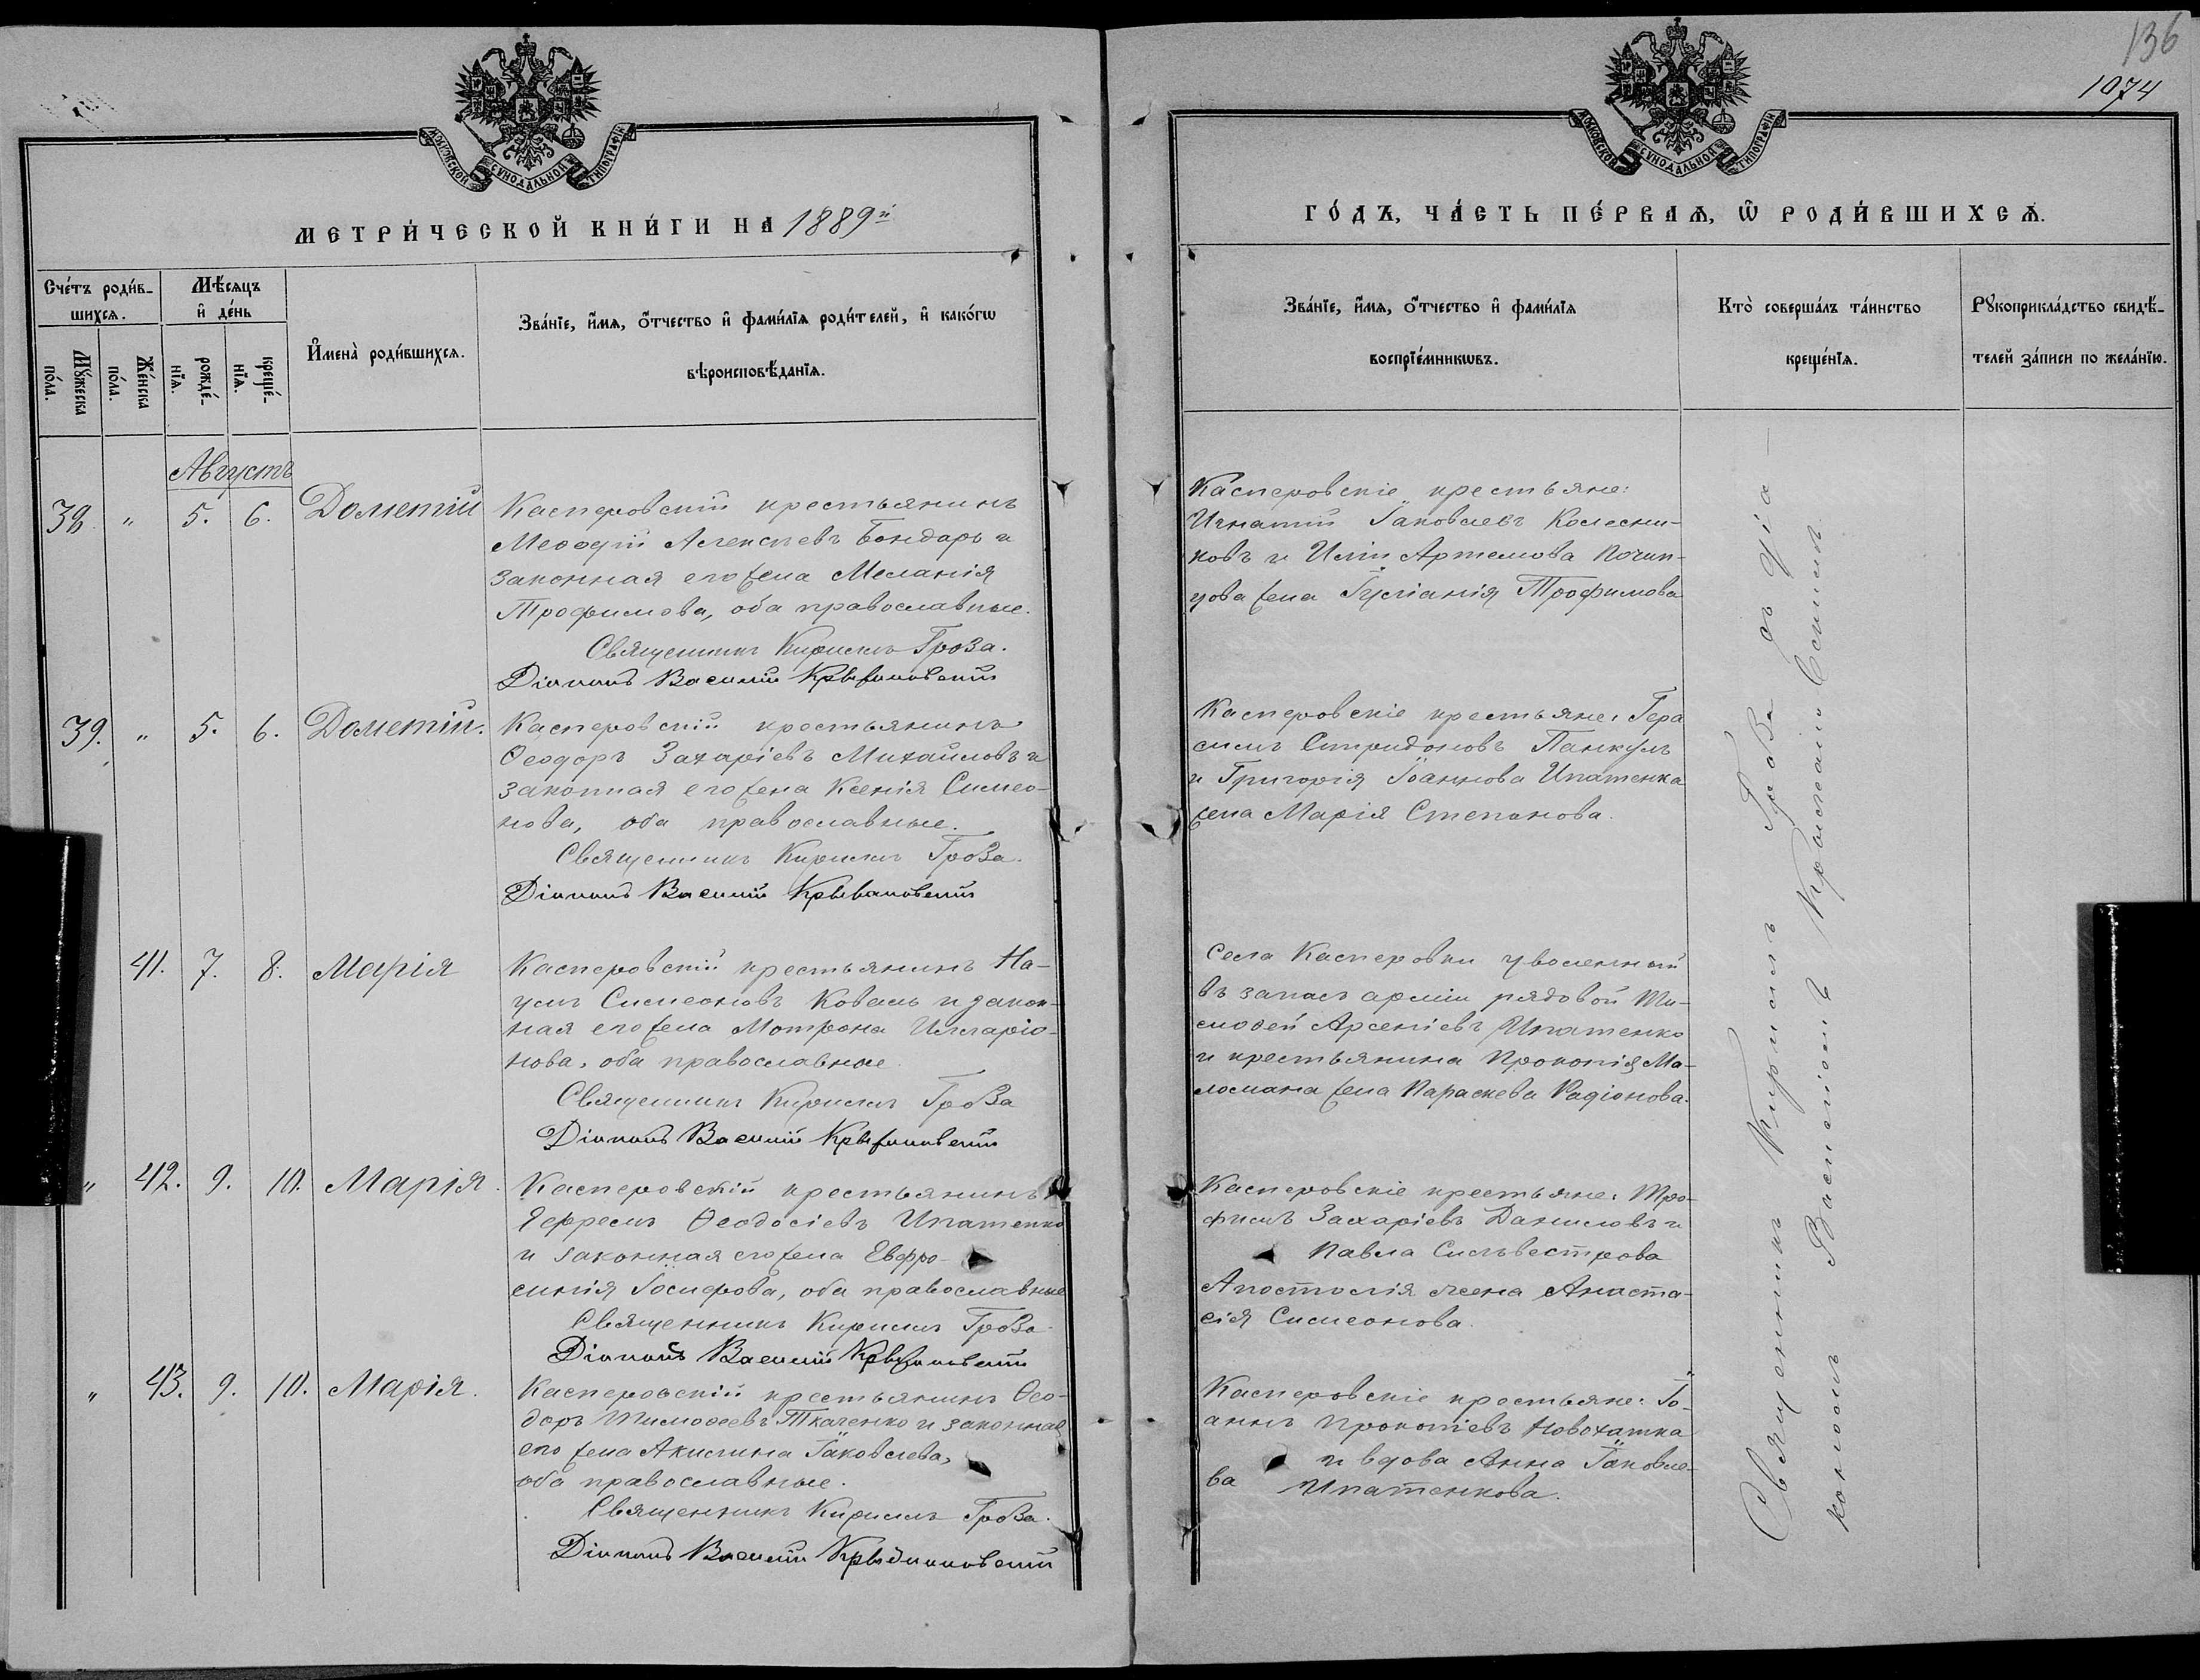 136
1074
МОСКОВСКОЙ СѴНОДАЛЬНОЙ ТИПОГРАФІИ
МОСКОВСКОЙ СѴНОДАЛЬНОЙ ТИПОГРАФІИ
МЕТРИ́ЧЕСКОЙ КНИ́ГИ НА 1889й
ГО́ДЪ, ЧА́СТЬ ПЕ́РВАЯ, Ѡ РОДИ́ВШИХСЯ.
Сче́тъ роди́в-
шихся.
Му́жеска
по́ла.
Же́нска
по́ла.
Мѣ́сяцъ
и де́нь
рожде́-
нія.
креще́-
нія.
Имена̀ роди́вшихся.
Зва́ніе, и́мя, о́тчество и фами́лія роди́телей, и како́гѡ
вѣроисповѣ́данія.
Зва́ніе, и́мя, о́тчество и фами́лія
воспріе́мникѡвъ.
Кто̀ соверша́лъ та́инство
креще́нія.
Рꙋкоприкла́дство свидѣ́-
телей за́писи по жела́нію.
Августъ
38 " 5. 6. Дометій
Касперовскій крестьянинъ
Меѳодій Алексіевъ Бондарь и
законная его жена Меланія
Трофимова, оба православные.
Священникъ Кириллъ Гроза.
Діаконъ Василій
Касперовскіе крестьяне:
Игнатій Іаковлевъ Колесни-
ковъ и Иліи Артемова Почин-
кова жена Іуліанія Трофимова
39. " 5. 6. Дометій.
Касперовскій крестьянинъ
Ѳеодоръ Захаріевъ Михайловъ и
законная его жена Ксенія Симео-
нова, оба православные.
Священникъ Кириллъ Гроза.
Діаконъ Василій
Касперовскіе крестьяне: Гера
симъ Спиридоновъ Панкулъ
и Григорія Іоаннова Ипатенка
жена Марія Степанова.
41. 7. 8. Марія
Касперовскій крестьянинъ На-
умъ Симеоновъ Коваль и закон-
ная его жена Мотрона Илларіо-
нова, оба православные.
Священникъ Кириллъ Гроза
Діаконъ Василій
Села Касперовки уволенный
въ запасъ арміи рядовой Ти-
моѳей Арсеніевъ Ипатенко
и крестьянина Прокопія Ма-
ломана жена Параскева Радіонова.
" 42. 9. 10. Марія.
Касперовскій крестьянинъ
Ефремъ Ѳеодосіевъ Ипатенко
и законная его жена Евфро-
синія Іосифова, оба православные
Священникъ Кириллъ Гроза
Діаконъ Василій
Касперовскіе крестьяне: Тро-
фимъ Захаріевъ Даниловъ и
Павла Сильвестрова
Апостолія жена Анаста-
сія Симеонова.
" 43. 9. 10. Марія.
Касперовскій крестьянинъ Ѳео-
доръ Тимоѳеевъ Ткаченко и законная
его жена Акилина Іаковлева,
оба православные.
Священникъ Кириллъ Гроза.
Діаконъ Василій
Касперовскіе крестьяне: Іо-
аннъ Прокопіевъ Новохатка
и вдова Анна Іаковле-
ва Ипатенкова.
Священникъ Кириллъ Гроза съ діа-
кономъ Василіемъ